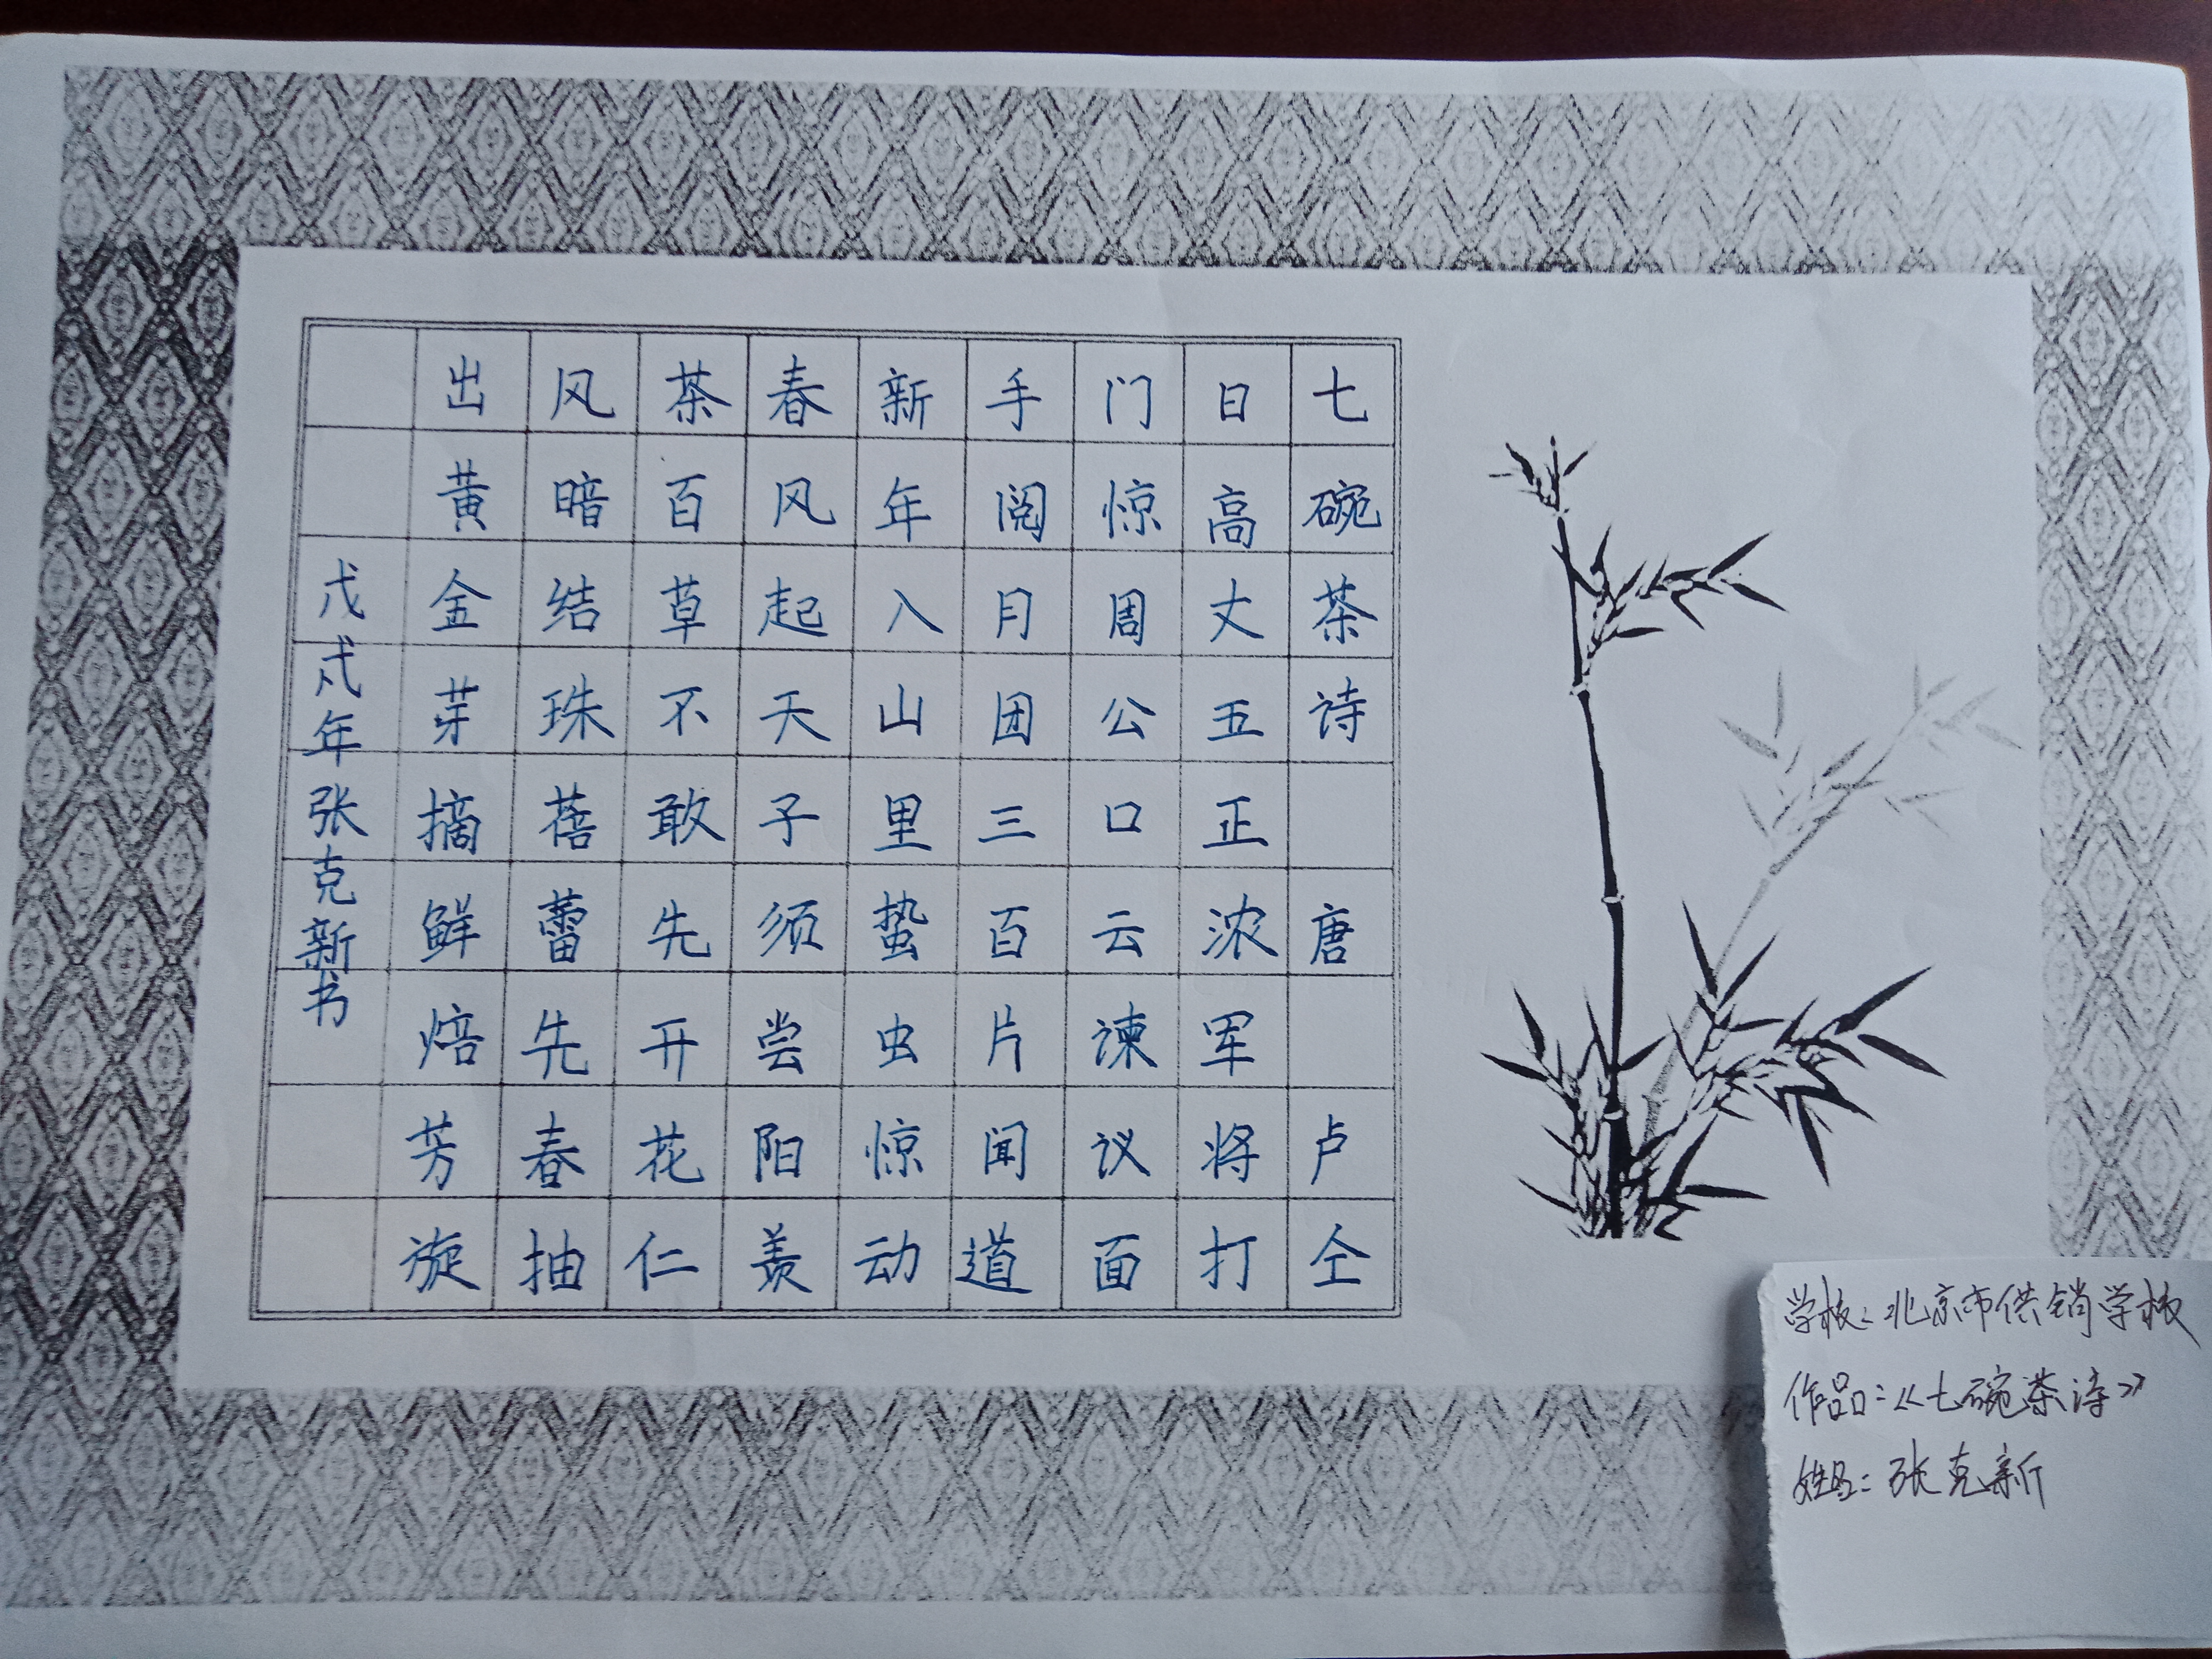 七碗茶诗 唐 卢仝
日高丈五正浓军将打
门惊周公口云谏议面
手阅月团三百片闻道
新年入山里蛰虫惊动
春风起天子须尝阳羡
茶百草不敢先开花仁
风暗结珠蓓蕾先春抽
出黄金芽摘鲜焙芳旋
戊戌年张克新书
学校：北京市供销学校
作品：《七碗茶诗》
姓名：张克新